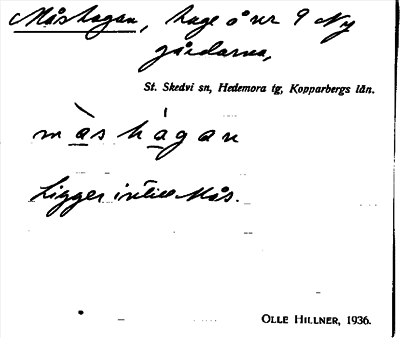 Måshagan, hage å nr 9 Ny
gårdarna,
St. Skedvi sn, Hedemora tg, Kopparbergs län.
m à s h á g a n
Ligger intill Mås.
OLLE HILLNER, 1936.